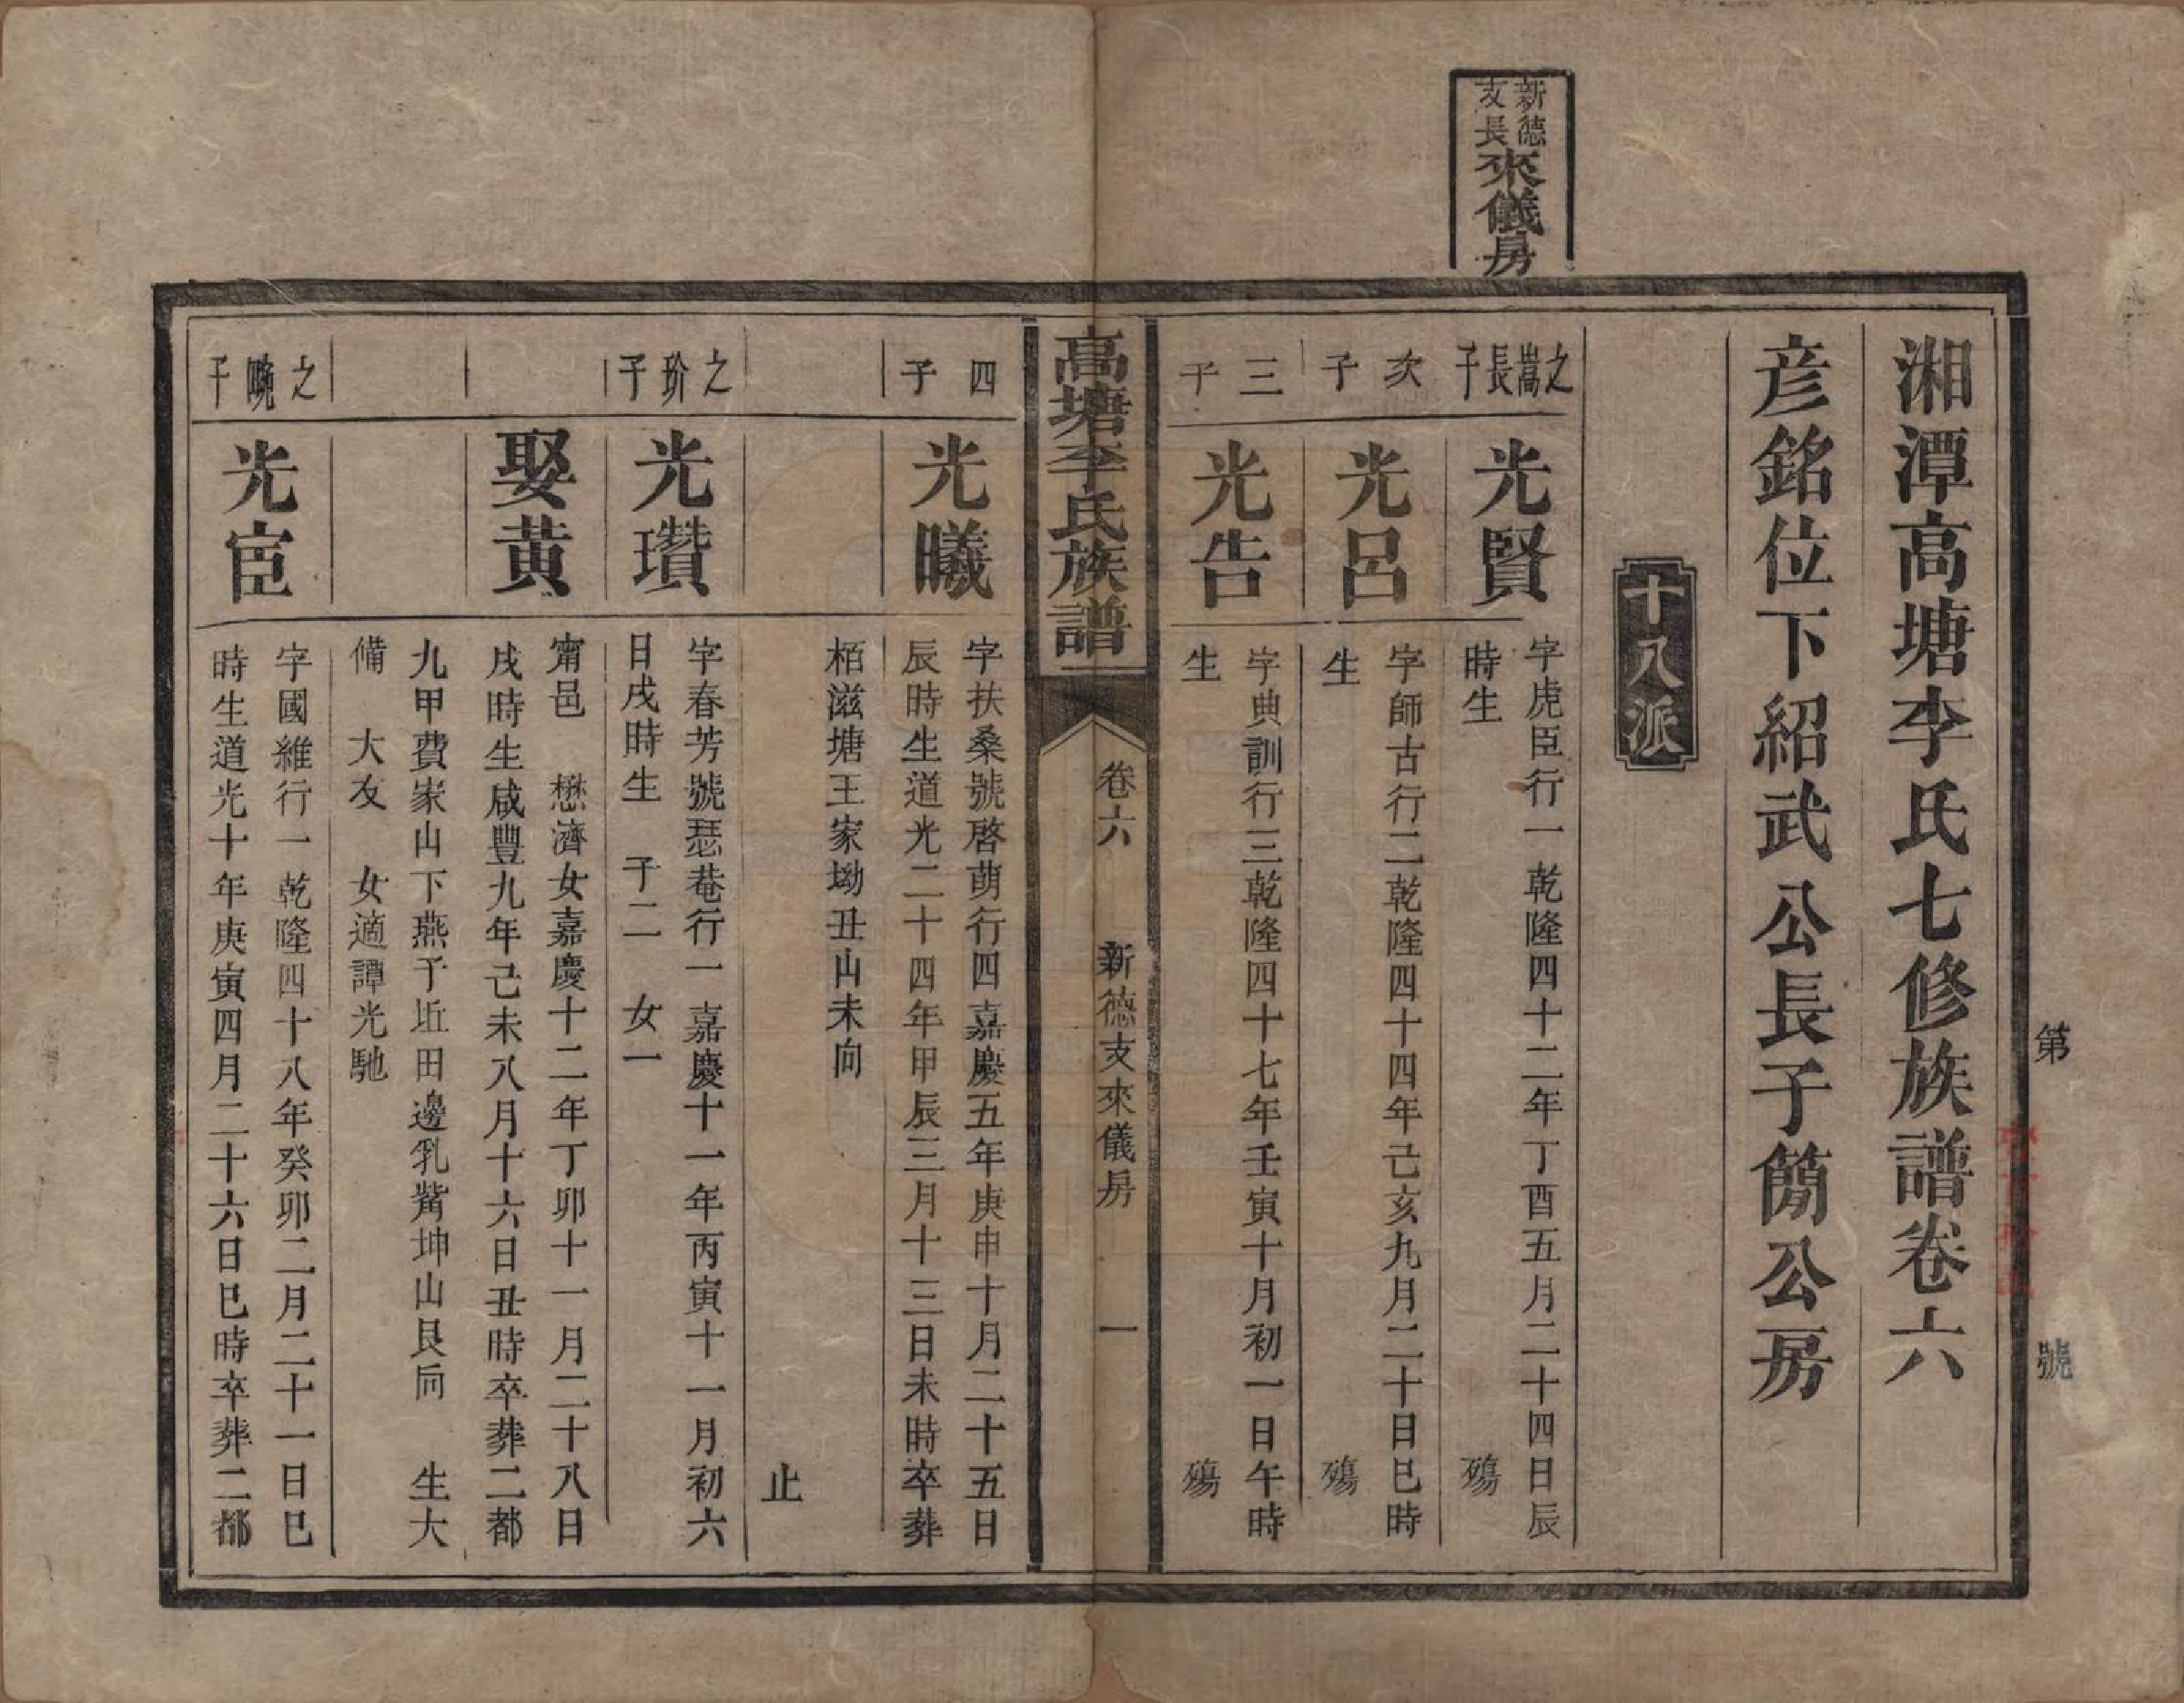 第　號
新德
支長
來儀房
湘潭高塘李氏七修族譜卷六
彥銘位下紹武公長子簡公房
十八派
之嵩長子
光賢
字虎臣行一乾隆四十二年丁酉五月二十四日辰
時生　殤
次子
光呂
字師古行二乾隆四十四年己亥九月二十日巳時
生　殤
三子
光告
字典訓行三乾隆四十七年壬寅十月初一日午時
生　殤
高塘李氏族譜
卷六　新德支來儀房　一
四子
光曦
字扶桑號啓萌行四嘉慶五年庚申十月二十五日
辰時生道光二十四年甲辰三月十三日未時卒葬
栢滋塘王家坳丑山未向
止
之玠子
光瓚
字春芳號瑟菴行一嘉慶十一年丙寅十一月初六
日戌時生　子二　女一
娶黃
甯邑　懋濟女嘉慶十二年丁卯十一月二十八日
戌時生咸豐九年己未八月十六日丑時卒葬二都
九甲費家山下燕子坵田邊乳觜坤山艮向　生大
備　大友　女適譚光馳
之晼子
光宦
字國維行一乾隆四十八年癸卯二月二十一日巳
時生道光十年庚寅四月二十六日巳時卒葬二都